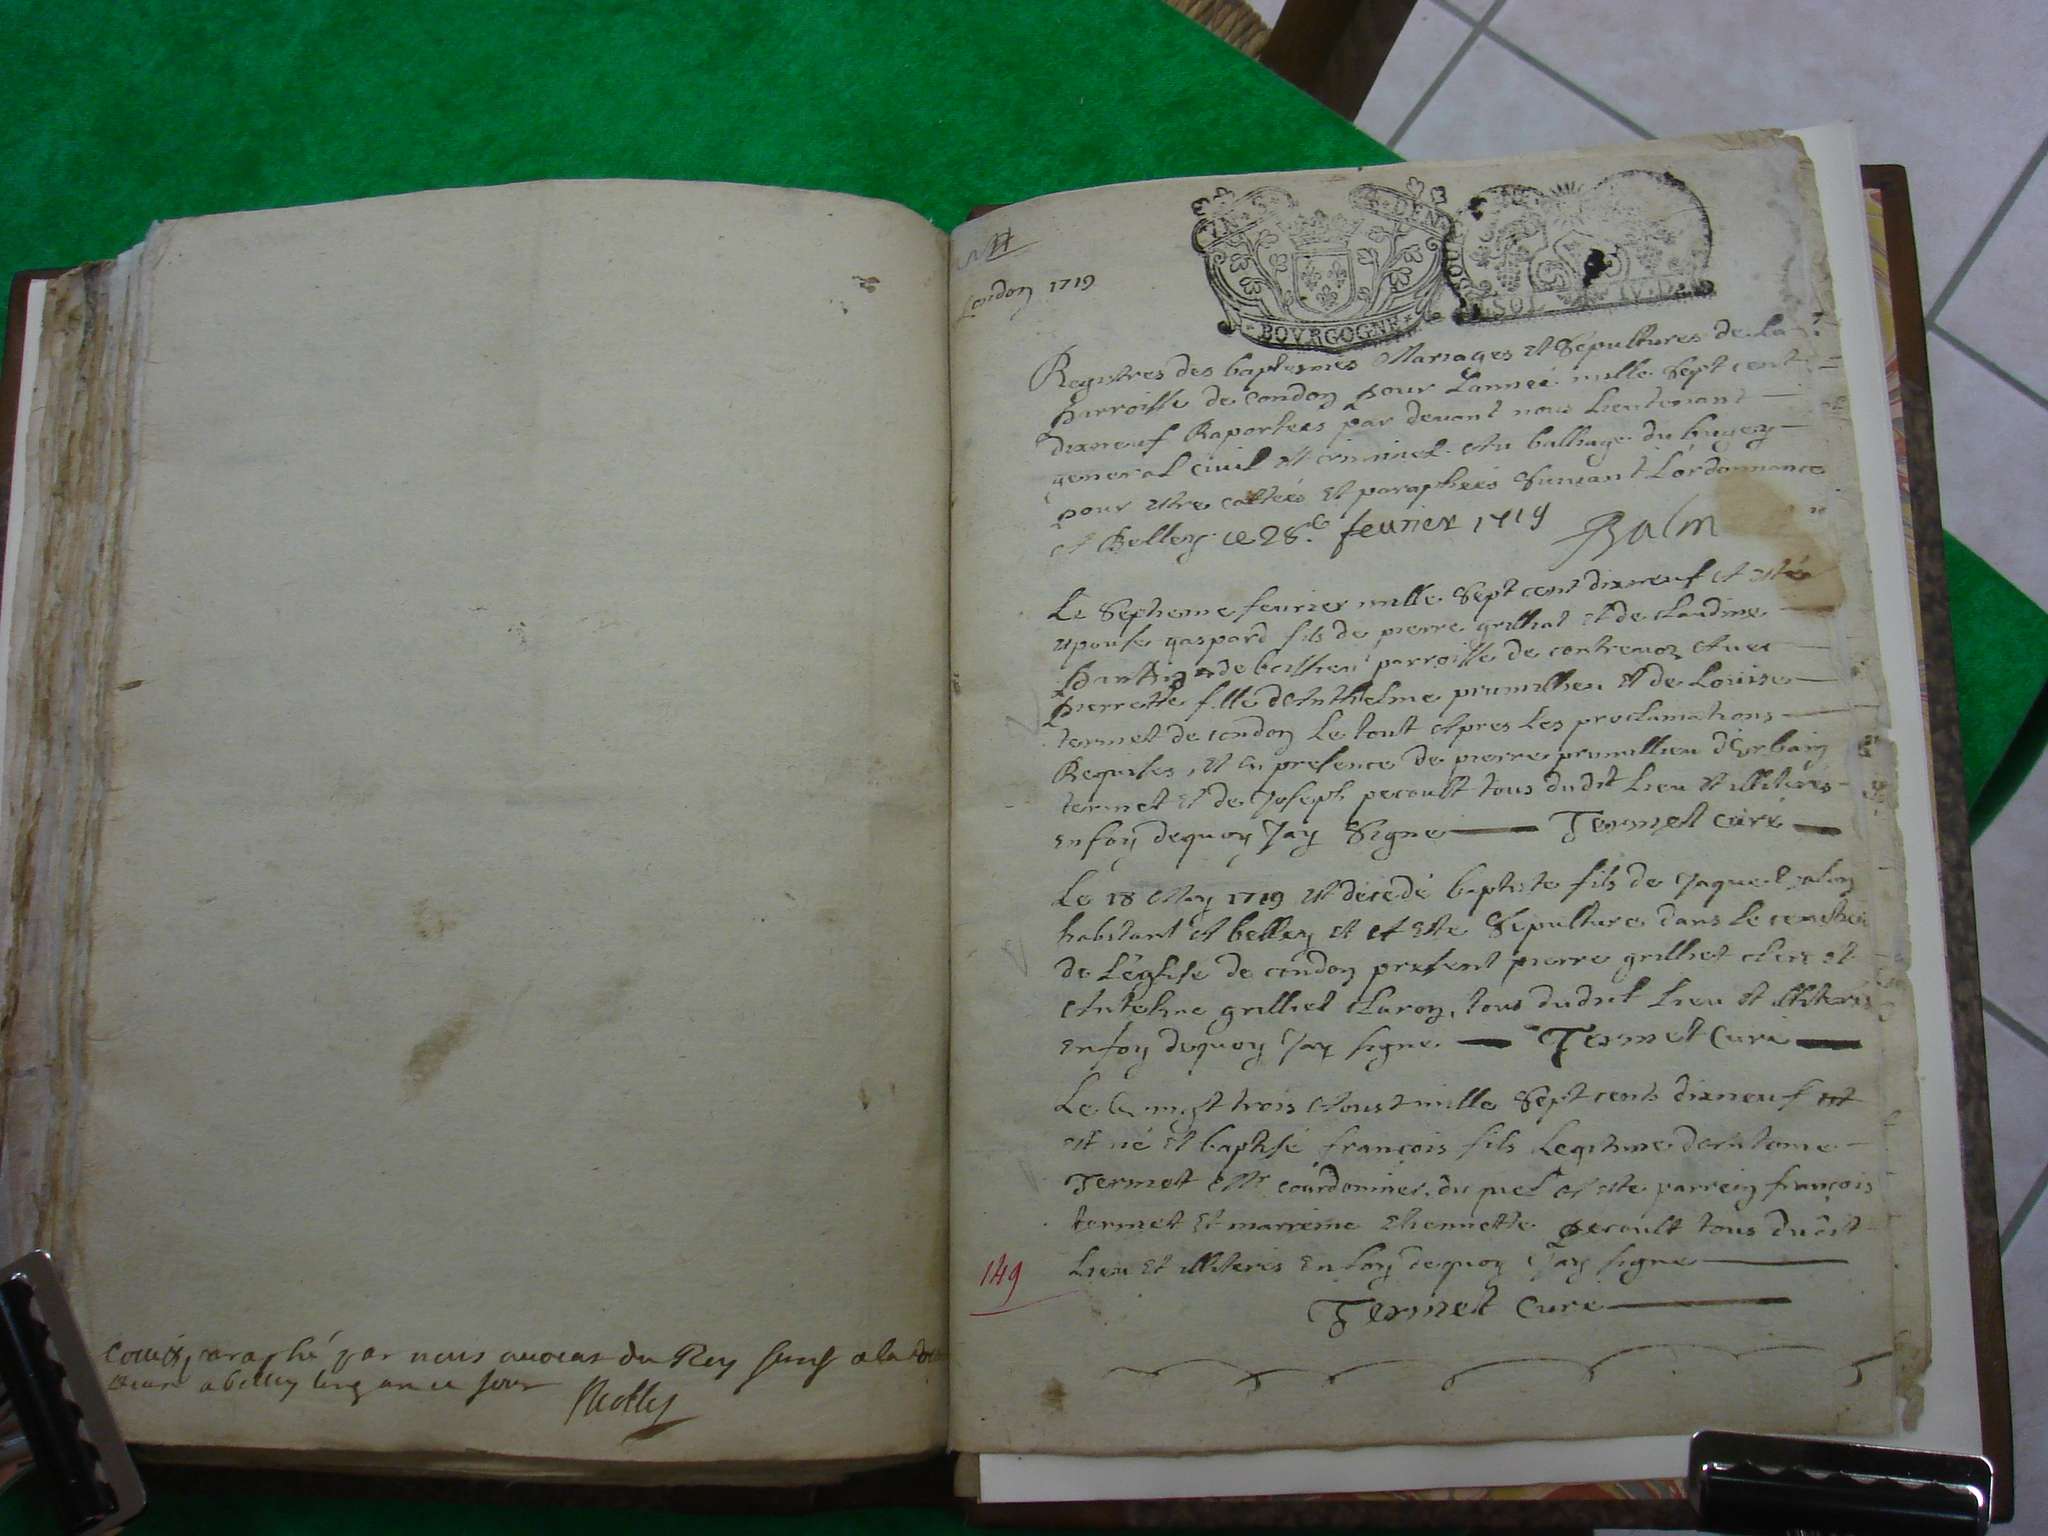 paraphé par nous avocat du Roy a la
a belley an ce jour
Condon 1719
BOVRGOGNE
SOL IV D
Registres des baptesmes Mariages et Sepultures de La
parroisse de Condon pour L'année mille Sept cent
dixneuf Raportées par devant nous Lieutenant
general Civil et criminel Au balliage du bugey
pour etre cottées et paraphées Suivant L'ordonnance
A Belley ce 28e fevrier 1719 Balm
Le Septieme fevrier mille Sept cent dixneuf A eté
epousé gaspard fils de pierre grilliet et de claudine
de parroisse de contrevoz Avec
pierrette fille d'Anthelme prumillieu et de Louise
termet de condon Le tout Apres Les proclamations
Requises, et en presence de pierre prumillieu d'Urbain
termet et de Joseph pecoult tous dudit Lieu et illiteres
En foy dequoy Jay Signé Termet curé
Le 18 May 1719 est decedé baptiste fils de Jaque
habitant A belley et A Eté Sepulturé dans Le cemetiere
de L'église de condon present pierre grilliet clerc et
Antelme grilliet tous dudit Lieu et illiteres
En foy dequoy Jay signé Termet Curé
Le vingt trois Aoust mille Sept cents dixneuf
est né et baptisé françois fils Legitime d'Antoine
Termet Mr courdonnier, du quel A eté parrein françois
termet Et marreine Etiennette pecoult tous dudit
Lieu Et illiteres En foy dequoy Jay signé
149
Termet Curé